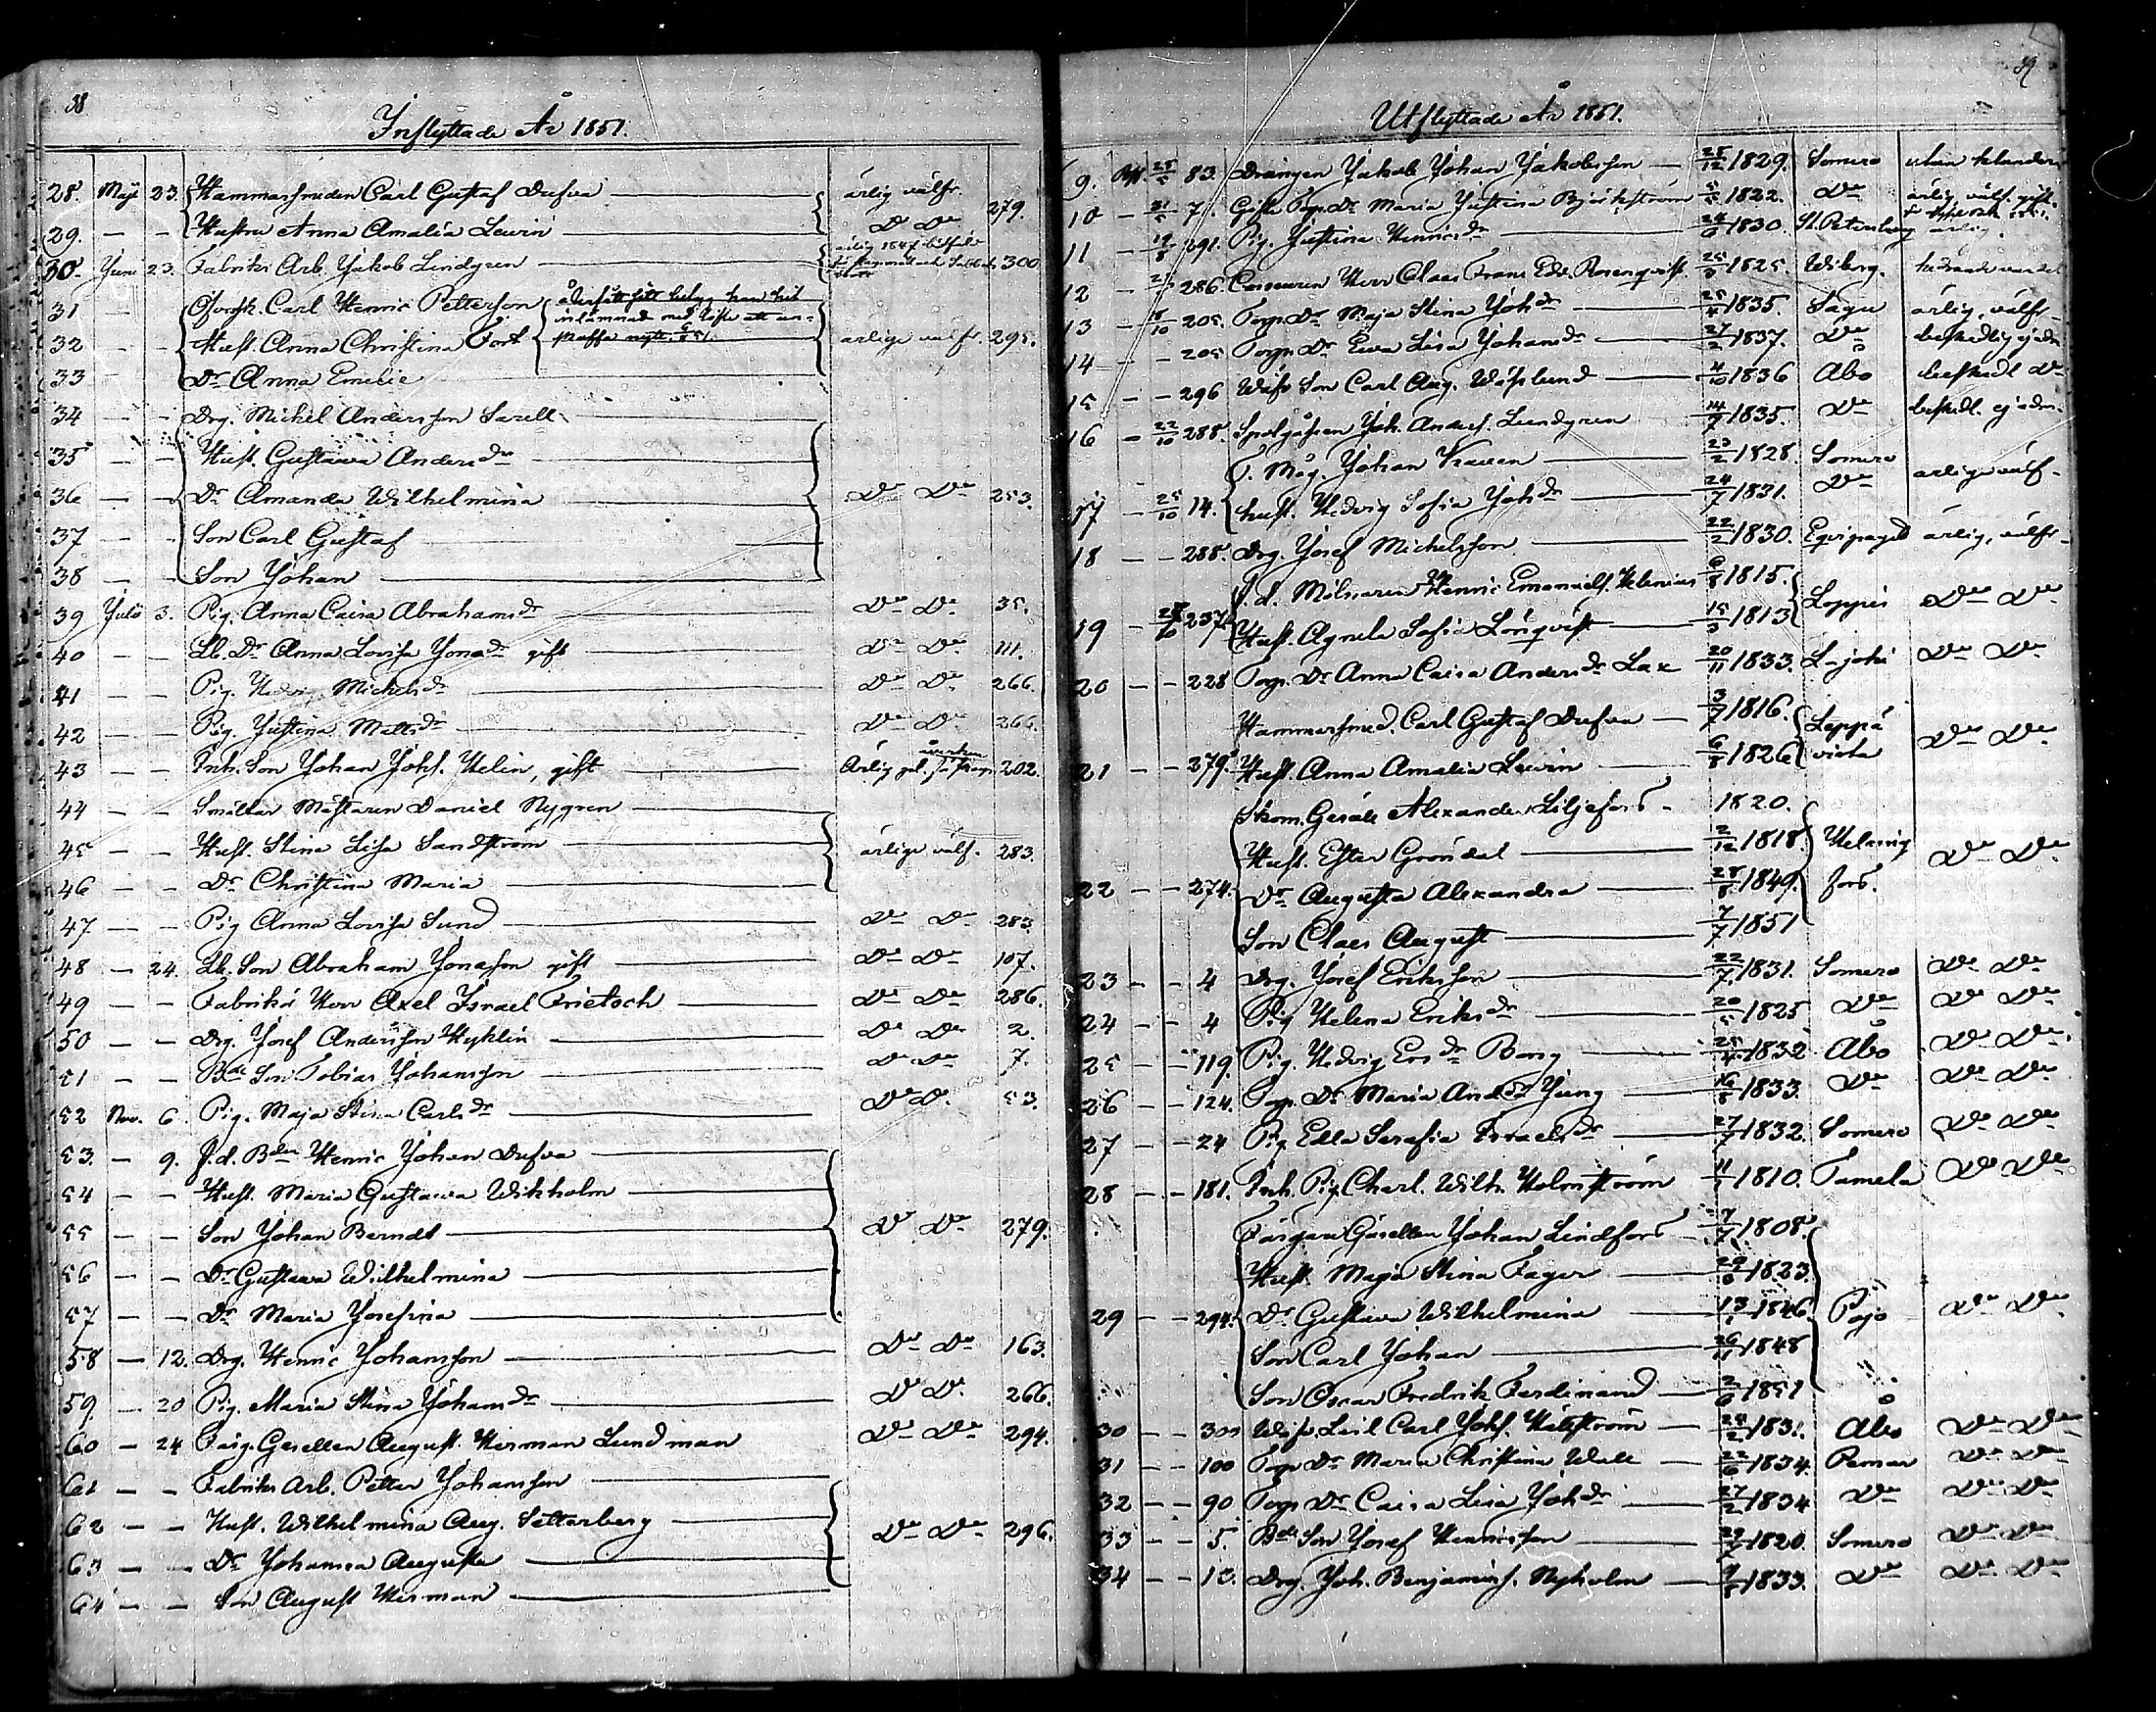 38
Inflyttade År 1851.
28. Maji 23. Hammarsmeden Carl Gustaf Dufva ärlig välfr.
29. - - Hustru Anna Amalia Lewin Do Do 279.
30. Juni 23. Fabriks Arb. Jakob Lindgren 300
31 - Carl Henric Petterson
32 - - Hust. Anna Christina Fort ärlige välfr. 295.
33 - Dr Anna Emelie
34 - - Drg. Michel Andersson Sarell
35 - - Hust. Gustava Andersdr
36 - - Dr Amanda Wilhelmina Do Do 253.
37 - - Son Carl Gustaf
38 - - Son Johan
39 Julii 3. Pig. Anna Caisa Abrahamsdr Do Do 35.
40 - - Lb. Dr Anna Lovisa Jonadr gift Do Do 111.
41 - - Pig. Hedvig Michelsdr Do Do 266.
42 - - Pig. Justina Mattsdr Do Do 266.
43 - - Inh. Son Johan Johs. Helin, gift Ärlig 202.
44 - - Smältar Mästaren Daniel Nygren
45 - - Hust. Stina Lisa Sandström ärlige välf. 283.
46 - - Dr Christina Maria
47 - - Pig Anna Lovisa Sund Do Do 283.
48 - 24. Lb. Son Abraham Jonasson gift Do Do 107.
49 - - Fabrikör Herr Axel Israel Frietsch Do Do 286.
50 - - Drg. Josef Andersson Hyklin Do Do 2.
51 - - Bde Son Tobias Johansson Do Do 7.
52 Nov. 6. Pig. Maja Stina Carlsdr Do Do 53.
53. - 9. F.d. Bden Henric Johan Dufva
54 - - Hust. Maria Gustava Wikholm
55 - - Son Johan Berndt Do Do 279.
56 - - Dr Gustava Wilhelmina
57 - - Dr Maria Josefina
58 - 12. Drg. Henric Johansson Do Do 163.
59. - 20 Pig. Maria Stina Johansdr Do Do 266.
60 - 24 Färg. Gesellen August Herman Lundman Do Do 294.
61 - - Fabriks Arb. Petter Johansson
62 - - Hust. Wilhelmina Aug. Setterberg Do Do 296.
63 - - Dr Johanna Augusta
64 - - Son August Herman
39
Utflyttade År 1851.
9. 25/5 83. Drängen Jakob Johan Jakobsson 25/12 1829. Somero utan klander
10 - 21/5 7. Gifta Torp. Dr Maria Justina Björkström 5/5 1822. Do ärlig välf. gift
11 - 291. Pig. Justina Henricsdr 1830. St. Petersburg ärlig.
12 - 286. Herr Claes Frans Edv. Rosenqvist 1825. Wiborg.
13 - 8/10 205. Torp. Dr Maja Stina Johdr 25/4 1835. Sagu ärlig, välfr.
14 - - 205 Torp. Dr Ewa Lisa Johansdr 27/2 1837. Do beskedlig
15 - - 296 Wäfv. Son Carl Aug. Wässlund 4/10 1836 Åbo beskedl. Do
16 - 22/10 288. Spolgåssen Joh. Anders. Lundgren 14/7 1835. Do beskedl.
T. Måg Johan Kraen 23/2 1828. Somero
17 - 25/10 14. hust. Hedvig Sofia Johdr 24/7 1831. Do ärlige välf.
18 - - 288. Drg. Josef Michelsson 22/2 1830. Equipaget ärlig, välfr.
F.d. Mölnaren Henric Emanuels. Helenius 1815.
19 - 237. Hust. Agneta Sofia Lönqvist 1813 Loppis Do Do
20 - - 228 Torp. Dr Anna Caisa Andersdr Lax 20/11 1833. L-joki Do Do
Hammarsmed. Carl Gustaf Dufva 3/7 1816.
21 - - 279. Hust. Anna Amalia Lewin 1826 Leppävirta Do Do
Skom. Gesäll Alexander Liljefors 1820.
Hust. Ester Gröndal 2/12 1818. Helsingfors. Do Do
22 - - 274. Dr Augusta Alexandra 1849.
Son Claes August 7/7 1851
23 - - 4 Drg. Josef Ericksson 22/7 1831. Somero Do Do
24 - - 4 Pig Helena Eriksdr 1825 Do Do Do
25 - - 119. Pig. Hedvig Ersdr Borg 1832 Åbo Do Do
26 - - 124. Torp. Dr Maria Andersdr Ljung 1833. Do Do Do
27 - - 24 Pig Edla Serafia Israelsdr 1832. Somero Do Do
28 - - 181. Inh. Pig. Charl. Wilh. Holmström 1810. Tamela Do Do
Färgare Gesellen Johan Lindfors 7/7 1808.
Hust. Maja Stina Fager 1823.
29 - - 294. Dr Gustava Wilhelmina 1846. Pojo Do Do
Son Carl Johan 1848
Son Oscar Fredrik Ferdinand 1851
30 - - 300 Carl Johs. Hällström 1831. Åbo Do Do
31 - - 100 Torp Dr Maria Christina Wall 1834. Pemar Do Do
32 - - 90. Torp Dr Caisa Lisa Johdr 27/2 1834 Do Do Do
33 - - 5. Bde Son Josef Henricsson 1820. Somero Do Do
34 - - 13. Drg. Joh. Benjamins. Nyholm 1833. Do Do Do